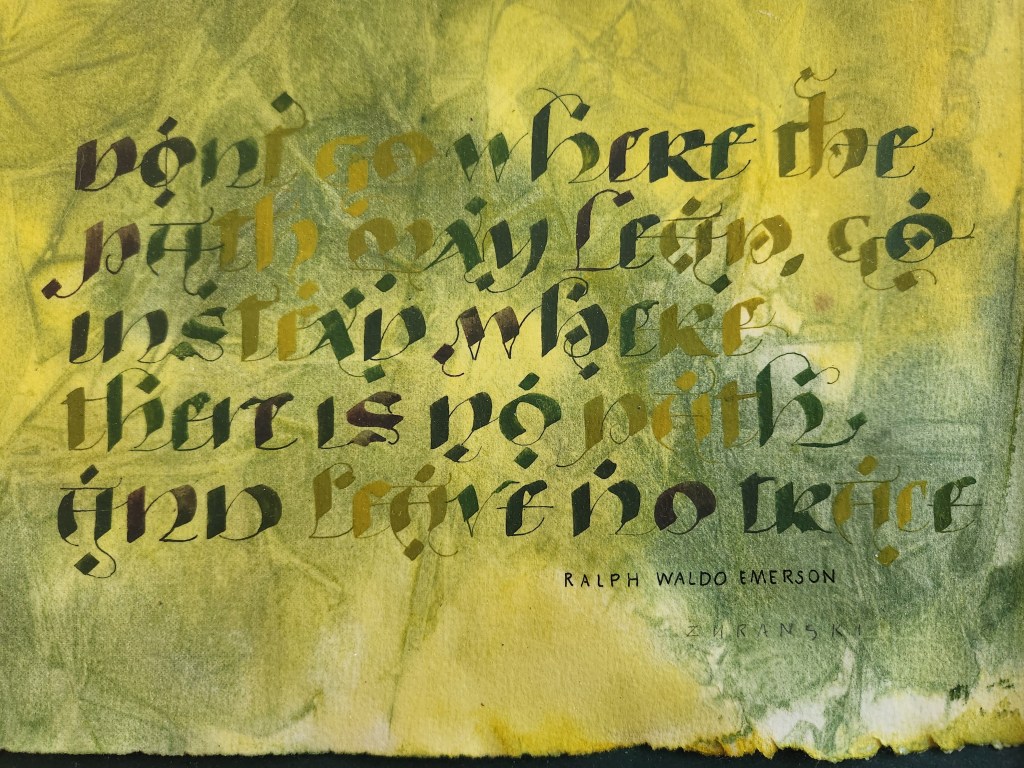 Dont go where the
path may lead, go
instead where
there is no path,
and leave no trace
RALPH WALDO EMERSON
ZURANSKI